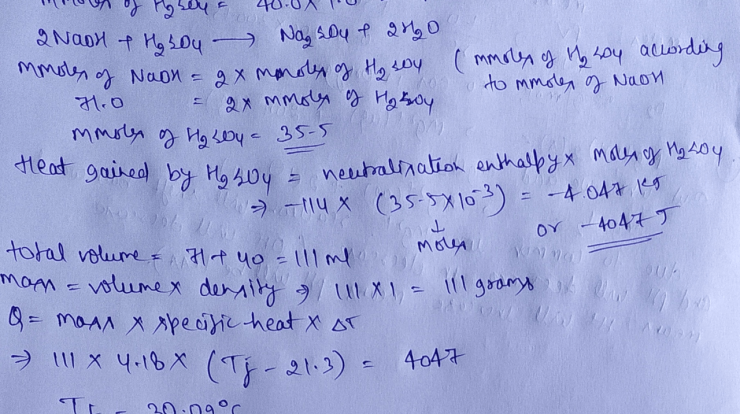 mmoles of H2SO4 = 40.0 x 1.0
2NaOH + H2SO4 → Na2SO4 + 2H2O
mmoles of NaOH = 2 x mmoles of H2SO4 ( mmoles of H2SO4 according
71.0 = 2 x mmoles of H2SO4 to mmoles of NaOH
mmoles of H2SO4 = 35.5
Heat gained by H2SO4 = neutralization enthalpy x moles of H2SO4
⇒ -114 x (35.5 x 10^-3) = -4.047 KJ
↓ moles or -4047 J
total volume = 71 + 40 = 111 ml
mass = volume x density ⇒ 111 x 1 = 111 grams
Q = mass x specific heat x ΔT
⇒ 111 x 4.18 x (Tf - 21.3) = 4047
Tf = 30.09°C